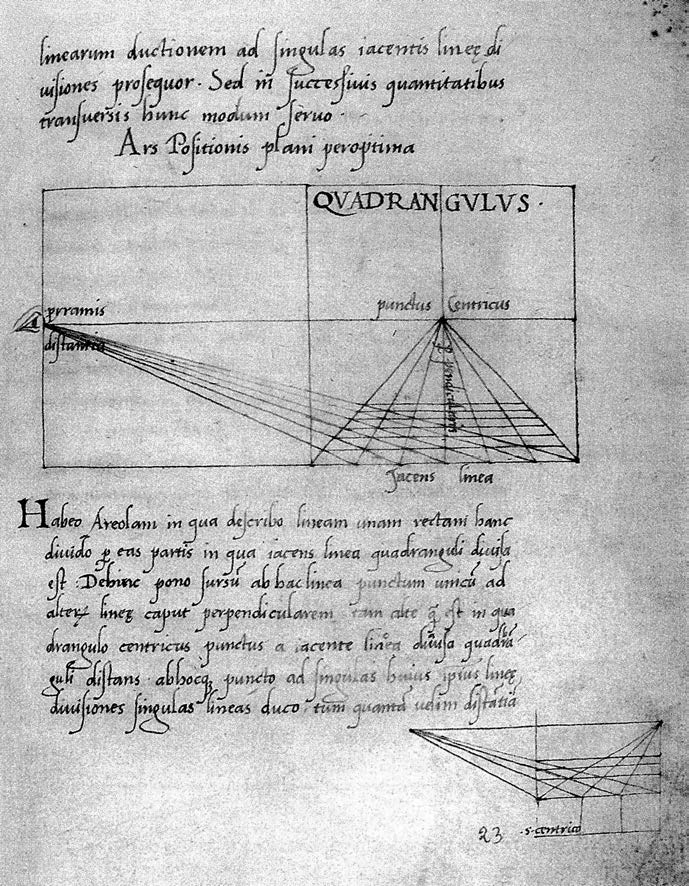 linearum ductionem ad singulas iacentis lineę di
uisiones prosequor · Sed in̄ successiuis quantitatibus
transuersis hunc modum seruo ·
Ars Positionis plani peroptima
QVADRANGVLVS ·
pyramis
punctus Centricus
distantia
Jacens linea
Habeo Areolam in qua describo lineam unam rectam hanc
diuido ꝑ eas partis in qua iacens linea quadranguli diuisa
est : Dehinc pono sursū ab hac linea punctum unicū ad
alterꝝ lineę caput perpendicularem tam alte q̄ est in qua
drangulo centricus punctus a iacente linea diuisa quadrā
guli distans · abhocq; puncto ad singulas huius ipsius lineę,
diuisiones singulas lineas duco · tum quantā uelim distātiā
23 ·s·centrico